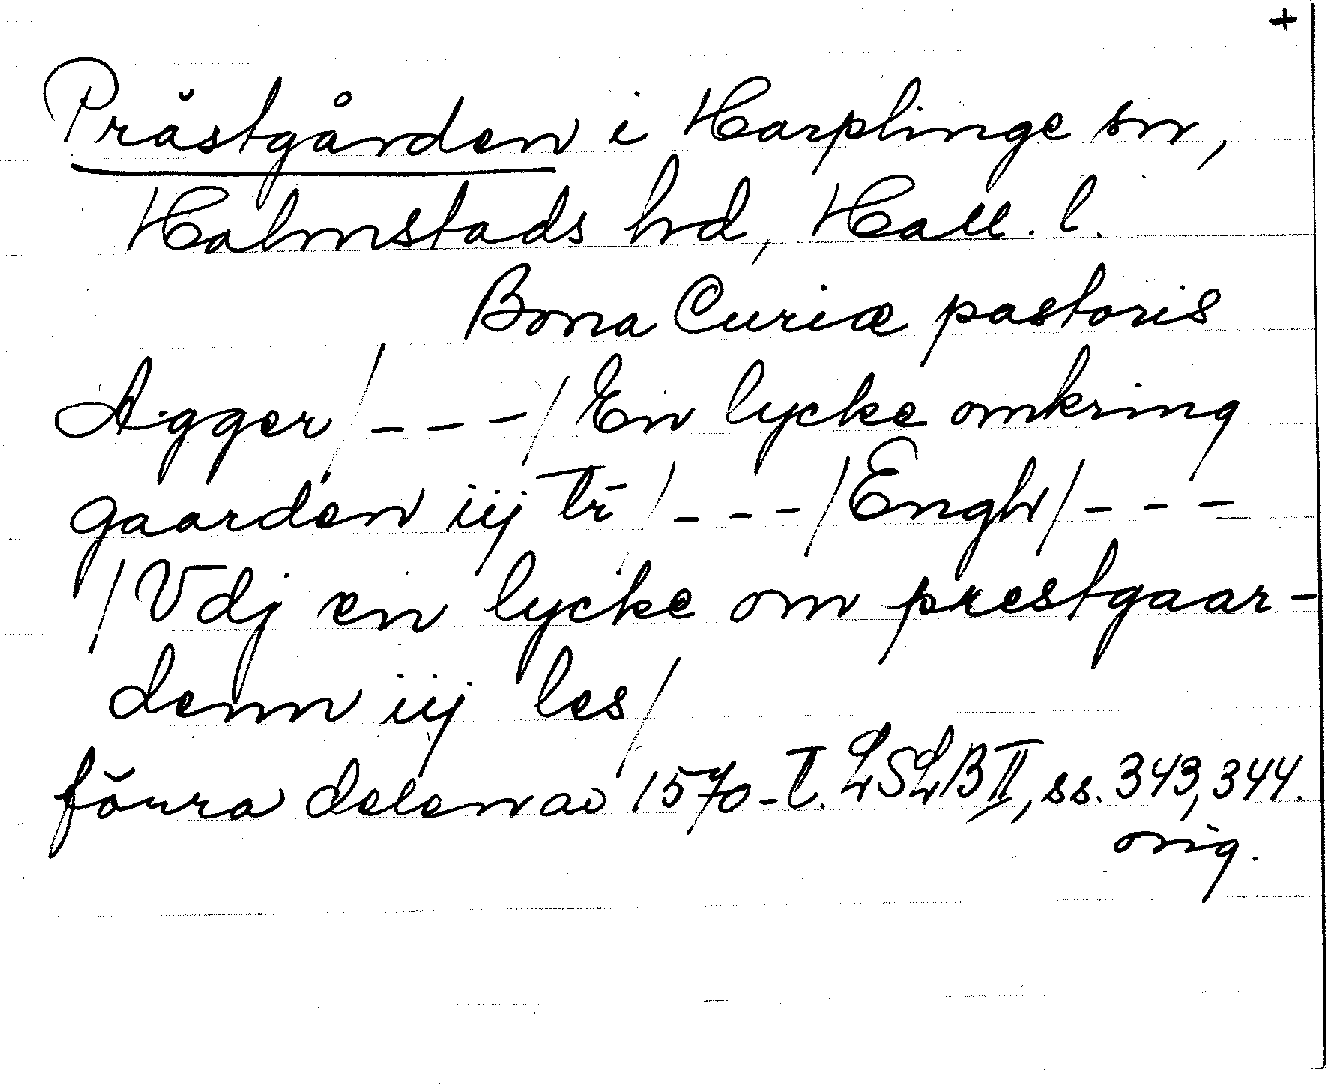 +
Prästgården i Harplinge sn,
Halmstads hd, Hall. l.
Bona Curiæ pastoris
Agger/ - - - /En lycke omkring
gaarden iij tr̄ / - - - /Engh/ - - -
/Vdj en lycke om prestgaar-
denn iij les/
förra delen av 1570-t. LSLB II, ss. 343, 344.
orig.